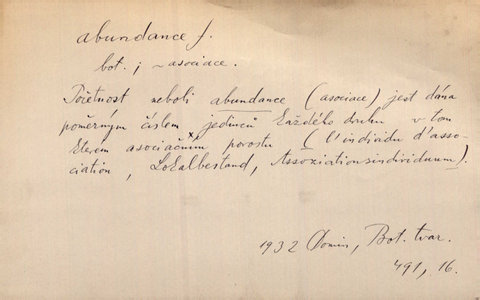 abundance f.
bot. ; ~ asociace.
Početnost neboli abundance (asociace) jest dána
poměrným číslem jedinců každého druhu v tom
kterém asociačním porostu (l'individu d'asso-
ciation, Lokalbestand, Assoziationsindividuum).
1932 Domin, Bot. tvar.
491, 16.